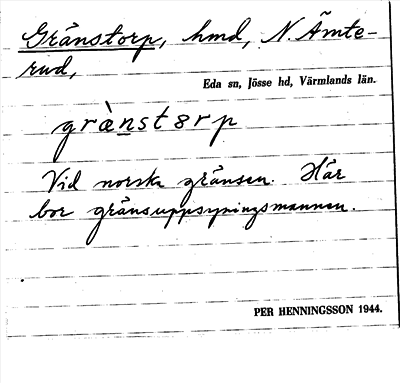 Gränstorp, hmd, N. Ämte-
rud,
Eda sn, Jösse hd, Värmlands län.
grὲnstɘrp
Vid norska gränsen. Här
bor gränsuppsyningsmannen.
PER HENNINGSSON 1944.